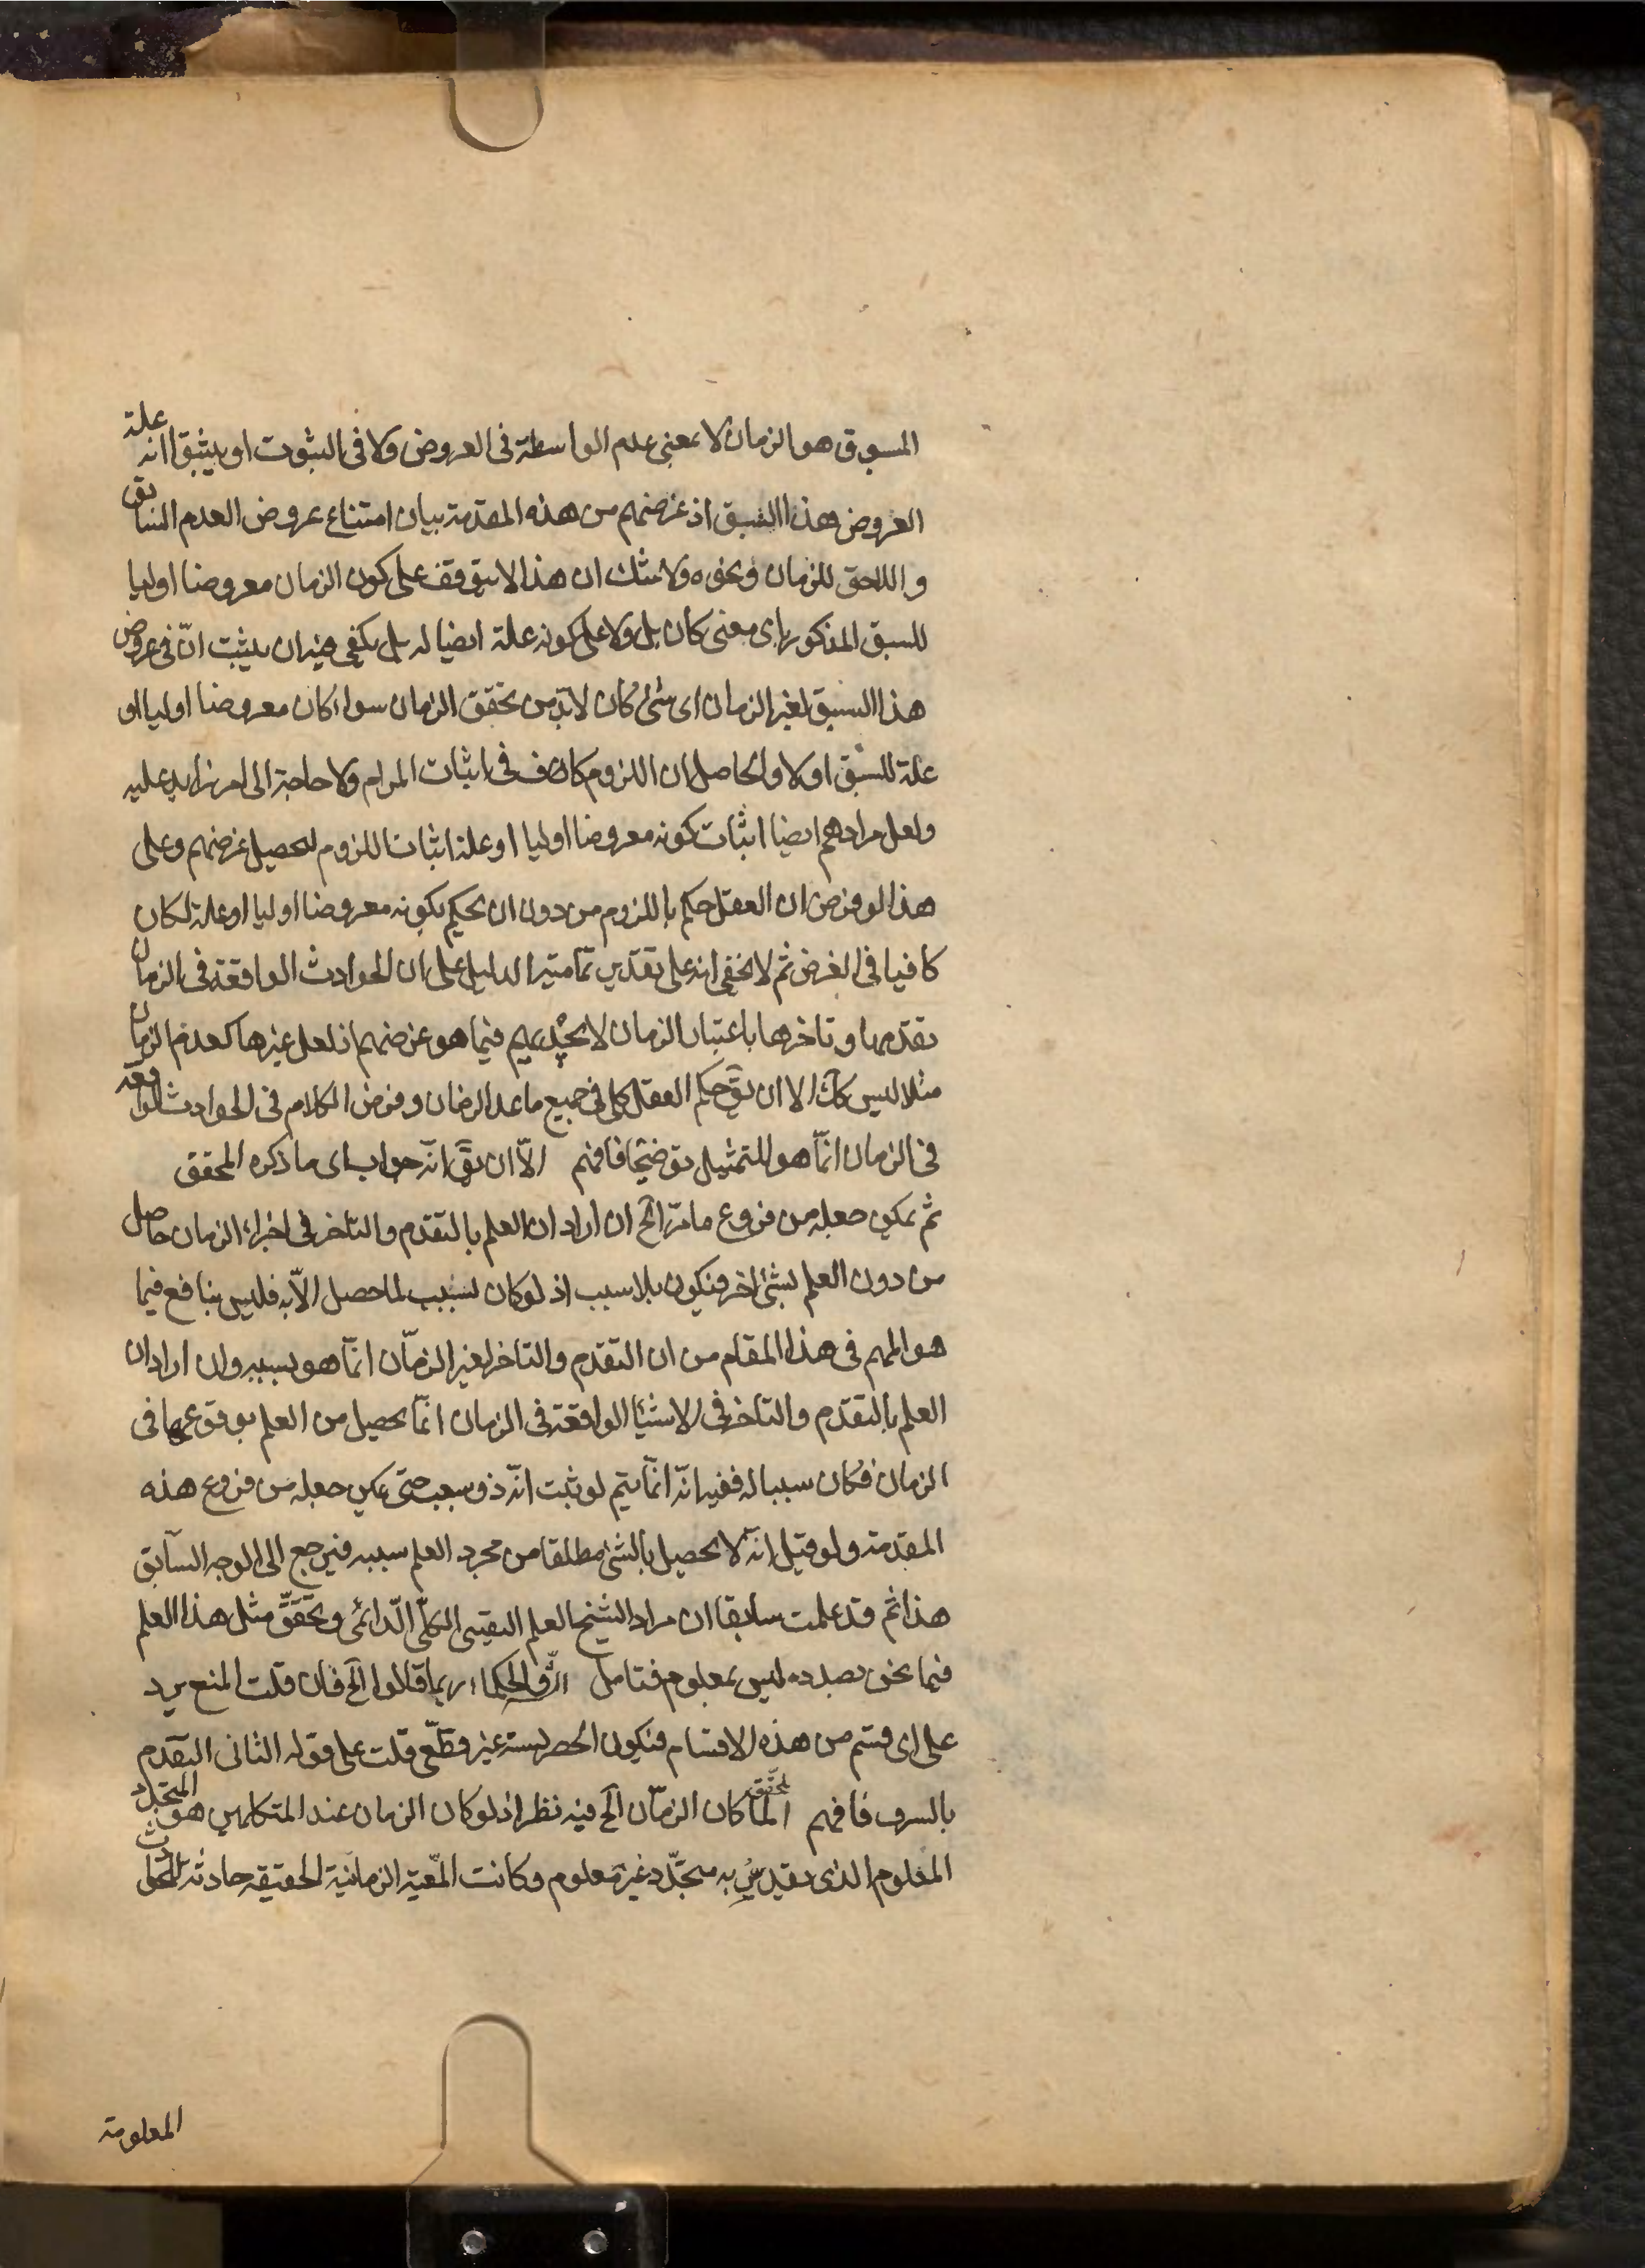 المسبوق هو الزمان لا بمعنى عدم الواسطة فى العروض ولا فى الثبوت او يثبت انه علة
العروض هذا السبق اذ غرضهم من هذه المقدمة بيان امتناع عروض العدم السابق
و اللاحق للزمان ونحوه ولا شك ان هذا لا يتوقف على كون الزمان معروضا اوليا
للسبق المذكور باى معنى كان بل ولا على كونه علة ايضا له بل يكفى فيه ان يثبت انّ فى عروض
هذا السبق لغير الزمان اى شئ كان لا بد من تحقق الزمان سواء كان معروضا اوليا او
علة للسبق اولا والحاصل ان اللزوم كاف فى اثبات المرام ولا حاجة الى امر زايد عليه
ولعل مرادهم ايضا اثبات كونه معروضا اوليا او علة اثبات اللزوم لتحصيل غرضهم وعلى
هذا لو فرض ان العقل حكم باللزوم من دون ان يحكم بكونه معروضا اوليا او علة لكان
كافيا فى الغرض ثم لا يخفى انه على تقدير تمامية الدليل على ان الحوادث الواقعة فى الزمان
تقدمها و تاخرها باعتبار الزمان لا يجديهم فيما هو غرضهم اذ لعل غيرها كعدم الزمان
مثلا ليس كك الا ان يق حكم العقل كلى فى جميع ما عدا الزمان وفرض الكلام فى الحوادث الواقعة
فى الزمان انّما هو للتمثيل توضيحا فافهم الّا ان يق انّه جواب اى ما ذكره المحقق
ثم يمكن جعله من فروع ما مرّ الخ ان اراد ان العلم بالتقدم والتاخر فى اجزاء الزمان حاصل
من دون العلم بشئ اخر فيكون بلا سبب اذ لو كان لسبب لما حصل الّا به فليس بنافع فيما
هو المهم فى هذا المقام من ان التقدم والتاخر لغير الزمان انّما هو بسببه وان اراد ان
العلم بالتقدّم والتاخر فى الاشيا الواقعة فى الزمان انّما يحصل من العلم بوقوعها فى
الزمان فكان سببا له ففيه انّه انّما يتم لو ثبت انّه ذو سبب حتى يمكن جعله من فروع هذه
المقدمة ولو قيل انّه لا يحصل بالشئ مطلقا من مجرد العلم بسببه فيرجع الى الوجه السابق
هذا ثم قد علمت سابقا ان مراد الشيخ العلم اليقينى الكلّى الدّائمى وتحقّق مثل هذا العلم
فيما نحن بصدده ليس بمعلوم فتامل الحكماء ربما قالوا الخ فان قلت المنع يرد
على اى قسم من هذه الاقسام فيكون الحصر لستة غير قطعى قلت على قوله الثانى التقدم
بالسرف فافهم المحقق لما كان الزمان الخ فيه نظر اذ لو كان الزمان عند المتكلمين هو المتجدد
المعلوم الذى يقدر به متجدّد غير معلوم وكانت المعية الزمانية الحقيقة حادثة
المعلومة